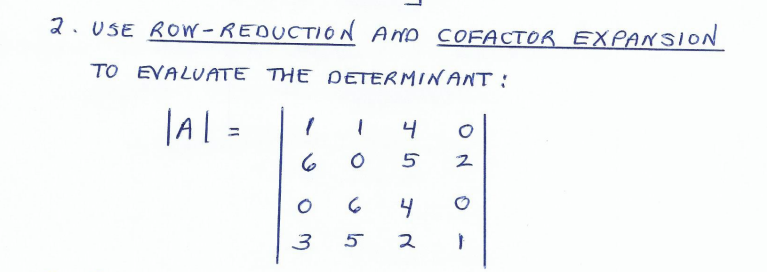 2. USE ROW-REDUCTION AND COFACTOR EXPANSION
TO EVALUATE THE DETERMINANT:
|A| = | 1 1 4 0 |
| 6 0 5 2 |
| 0 6 4 0 |
| 3 5 2 1 |